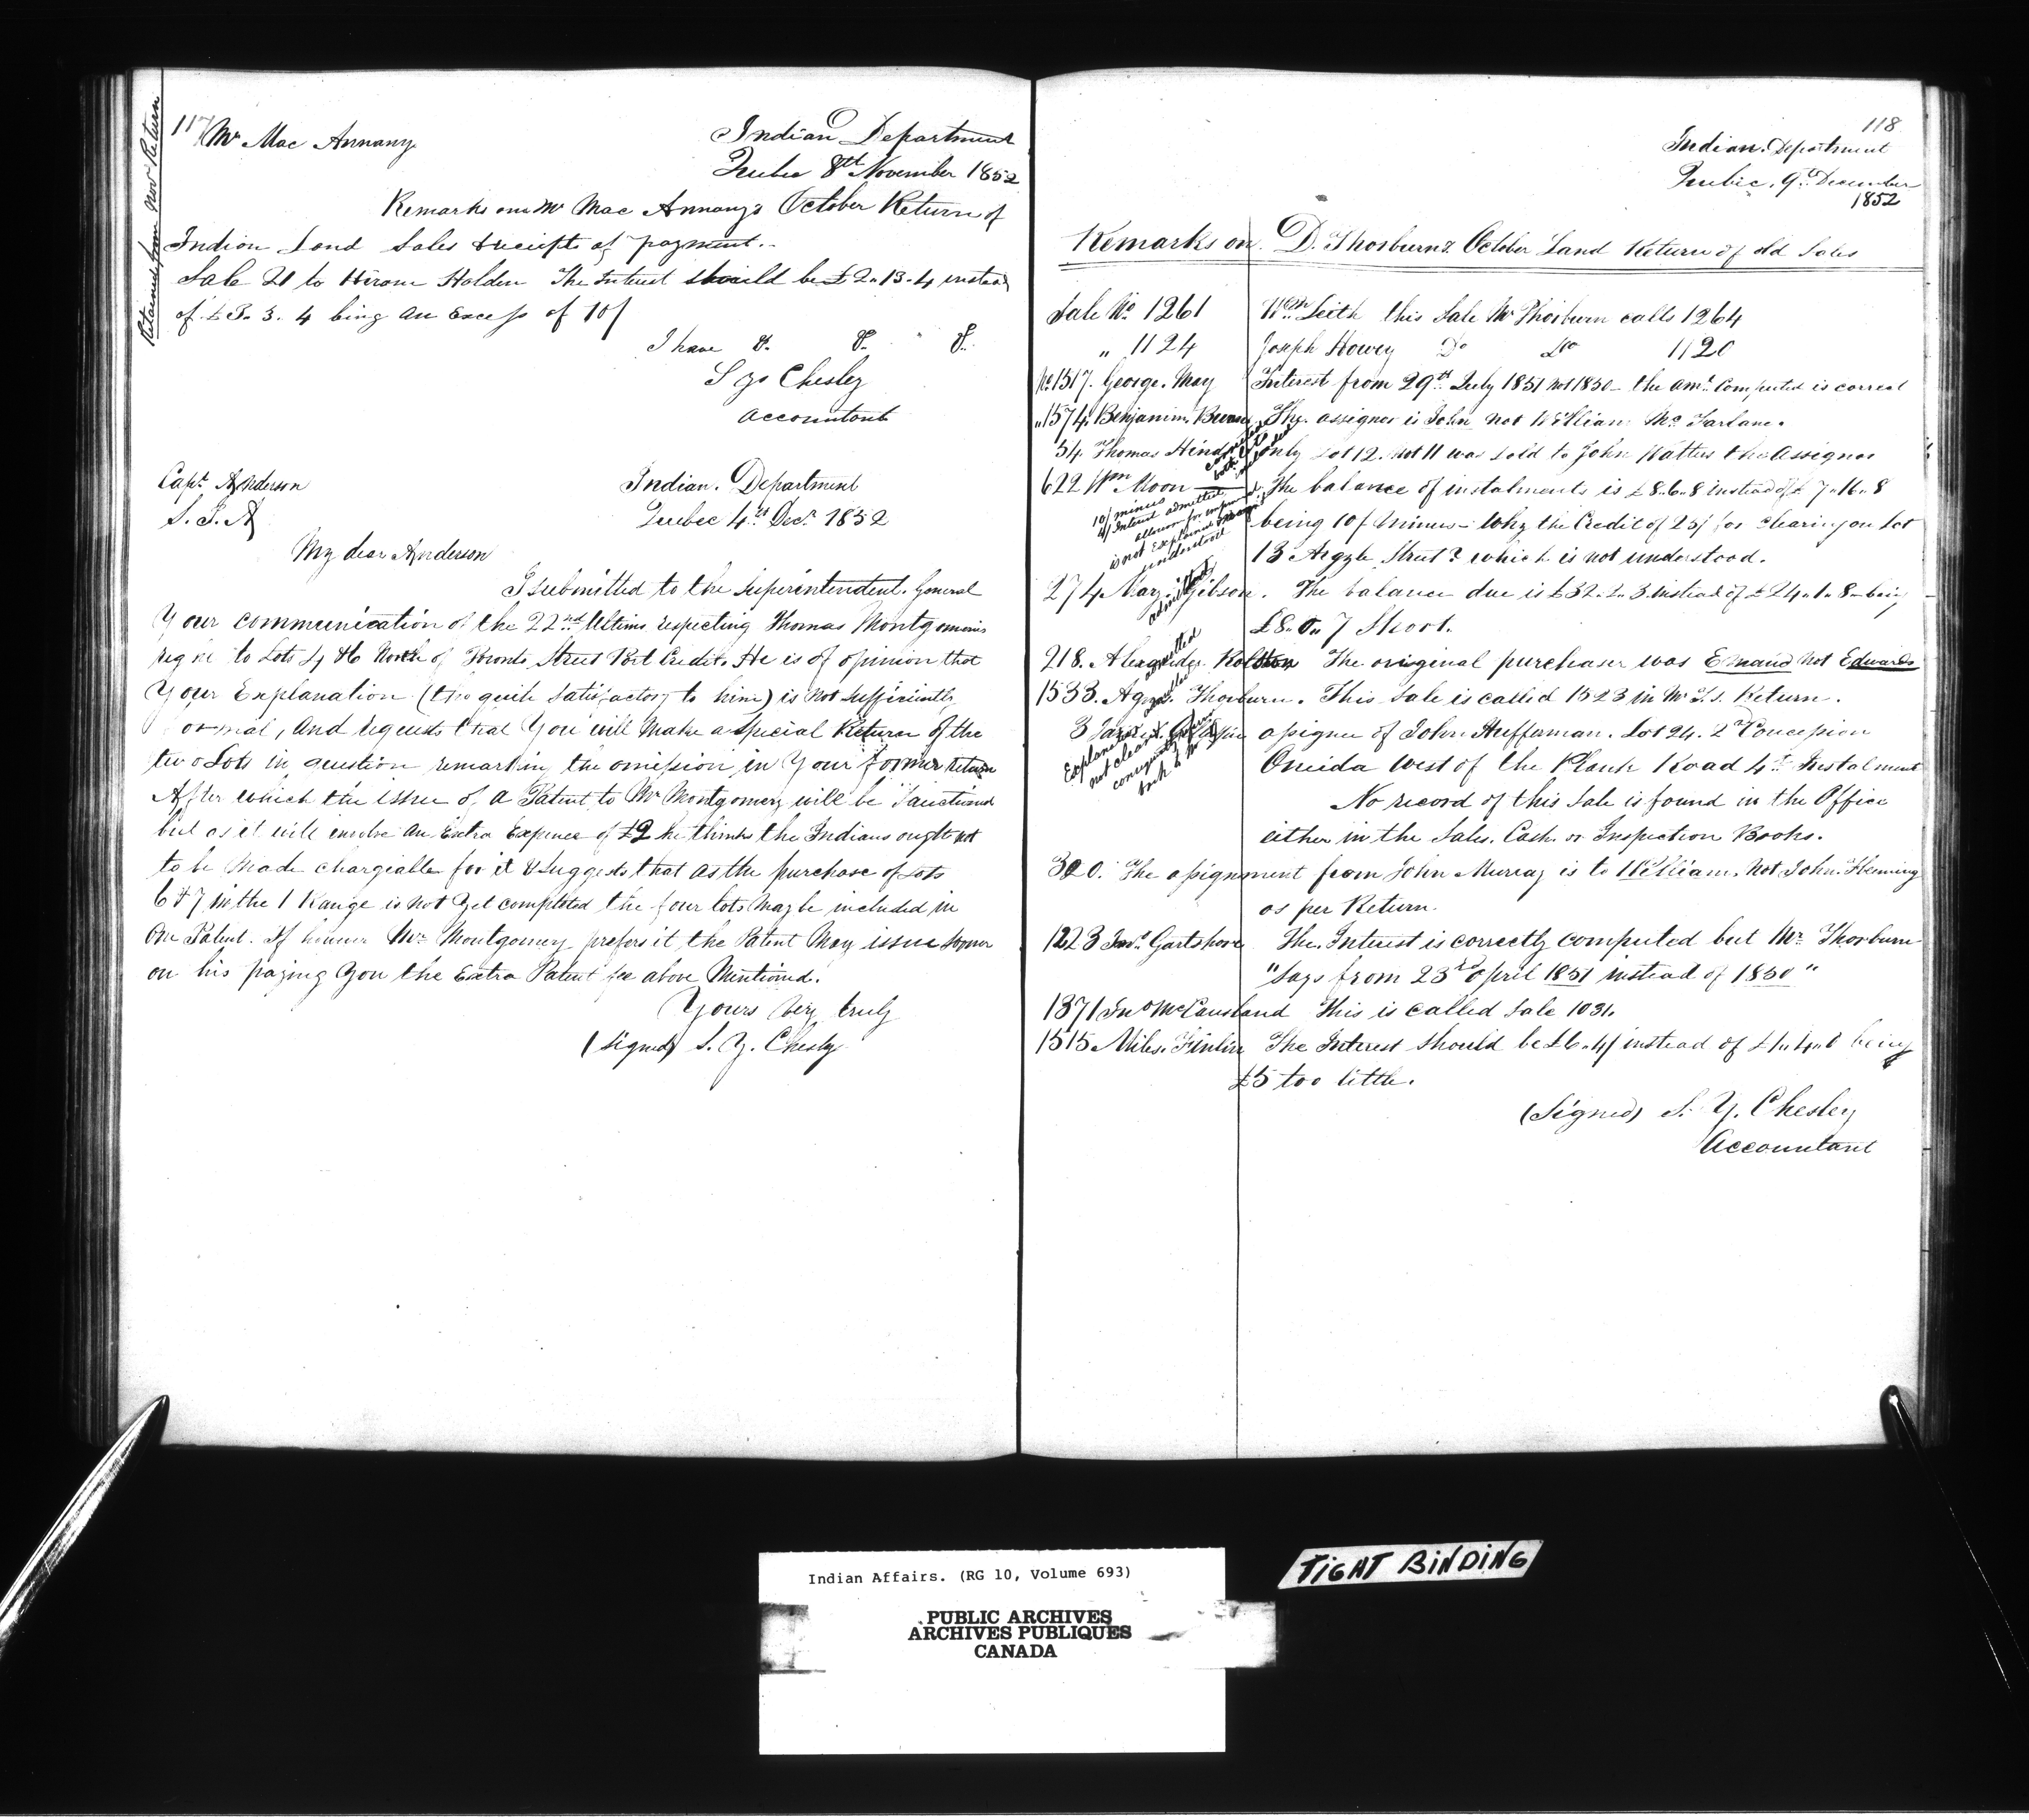 Retained from Nov Return
117
Mr Mac Annany
Indian Department
Quebec 8th November 1852
Remarks on Mr Mac Annany's October Return of
Indian Land Sales & receipts of payment.
Sale 21 to Hiram Holden The Interest should be £2.13.4 instead
of £3.3.4 being an Excess of 10/
I have &. &. &.
S Y Chesley
Accountant
Capt Anderson
S. I. A
Indian Department
Quebec 4th Decr 1852
My dear Anderson
I submitted to the Superintendent General
Your communication of the 22nd Ultimo respecting Thomas Montgomeries
to Lots 4 & 6 North of Street Port Credit. He is of opinion that
Your Explanation (tho quite satisfactory to him) is not sufficiently
formal, and requests that You will make a special Return of the
two Lots in question remarking the omission in Your former Return
After which the issue of a Patent to Mr Montgomery will be Sanctioned
but as it will involve an Extra Expence of £2 he thinks the Indians ought not
to be Made chargeable for it & suggests that as the purchase of Lots
6 & 7 in the 1 Range is not yet completed the four lots may be included in
One Patent. If however Mr Montgomery prefers it the Patent May issue sooner
on his paying You the Extra Patent fee above Mentioned.
Yours very truly
(signed) S. Y. Chesley
118
Indian Department
Quebec, 9th December
1852
Remarks on D. Thorburn's October Land Return of old Sales
Sale No 1261 Wm Leith this Sale Mr Thorburn calls 1264
" 1124 Joseph Howey Do Do 1120
No 1517. George May Interest from 29th July 1851 not 1850 - the amt computed is correct
" 1574. Benjamin The assignor is John not William McFarlane.
54. Thomas Hind only Lot 12. not 11 was sold to John Kattus the assignor
622 Wm Moon The balance of instalments is £8.6.8 instead of £7.16.8
10/ minus
4/ Interest admitted
allowance for
is not Explained
understood
being 10/ Minus - Why the Credit of 25/ for clearing on Lot
13 Argyle Street? which is not understood.
274 Mary Gibson. The balance due is £32.2.3 instead of £24.1.8 - being
admitted
£8.0.7 Short.
218. Alexander Rolston The original purchaser was Emand not Edwards
admitted
1533. Agnes Thorburn. This Sale is called 1523 in Mr T.'s Return.
3 assignee of John Huffaman. Lot 24. 2nd Concession
Explanation
not clear
Oneida West of the Plank Road 4th Instalment
No record of this Sale is found in the Office
either in the Sales, Cash or Inspection Books.
300. The assignment from John Murray is to William, not John Fleming
as per Return.
1223 Jno. Gartshore The Interest is correctly computed but Mr Thorburn
"says from 23rd April 1851 instead of 1850"
1371 Jno McCausland This is called Sale 1031.
1515 Miles Finlin The Interest should be £6.4/ instead of £1.4.0 being
£5 too little.
(Signed) S. Y. Chesley
Accountant
Indian Affairs. (RG 10, Volume 693)
TIGHT BINDING
PUBLIC ARCHIVES
ARCHIVES PUBLIQUES
CANADA